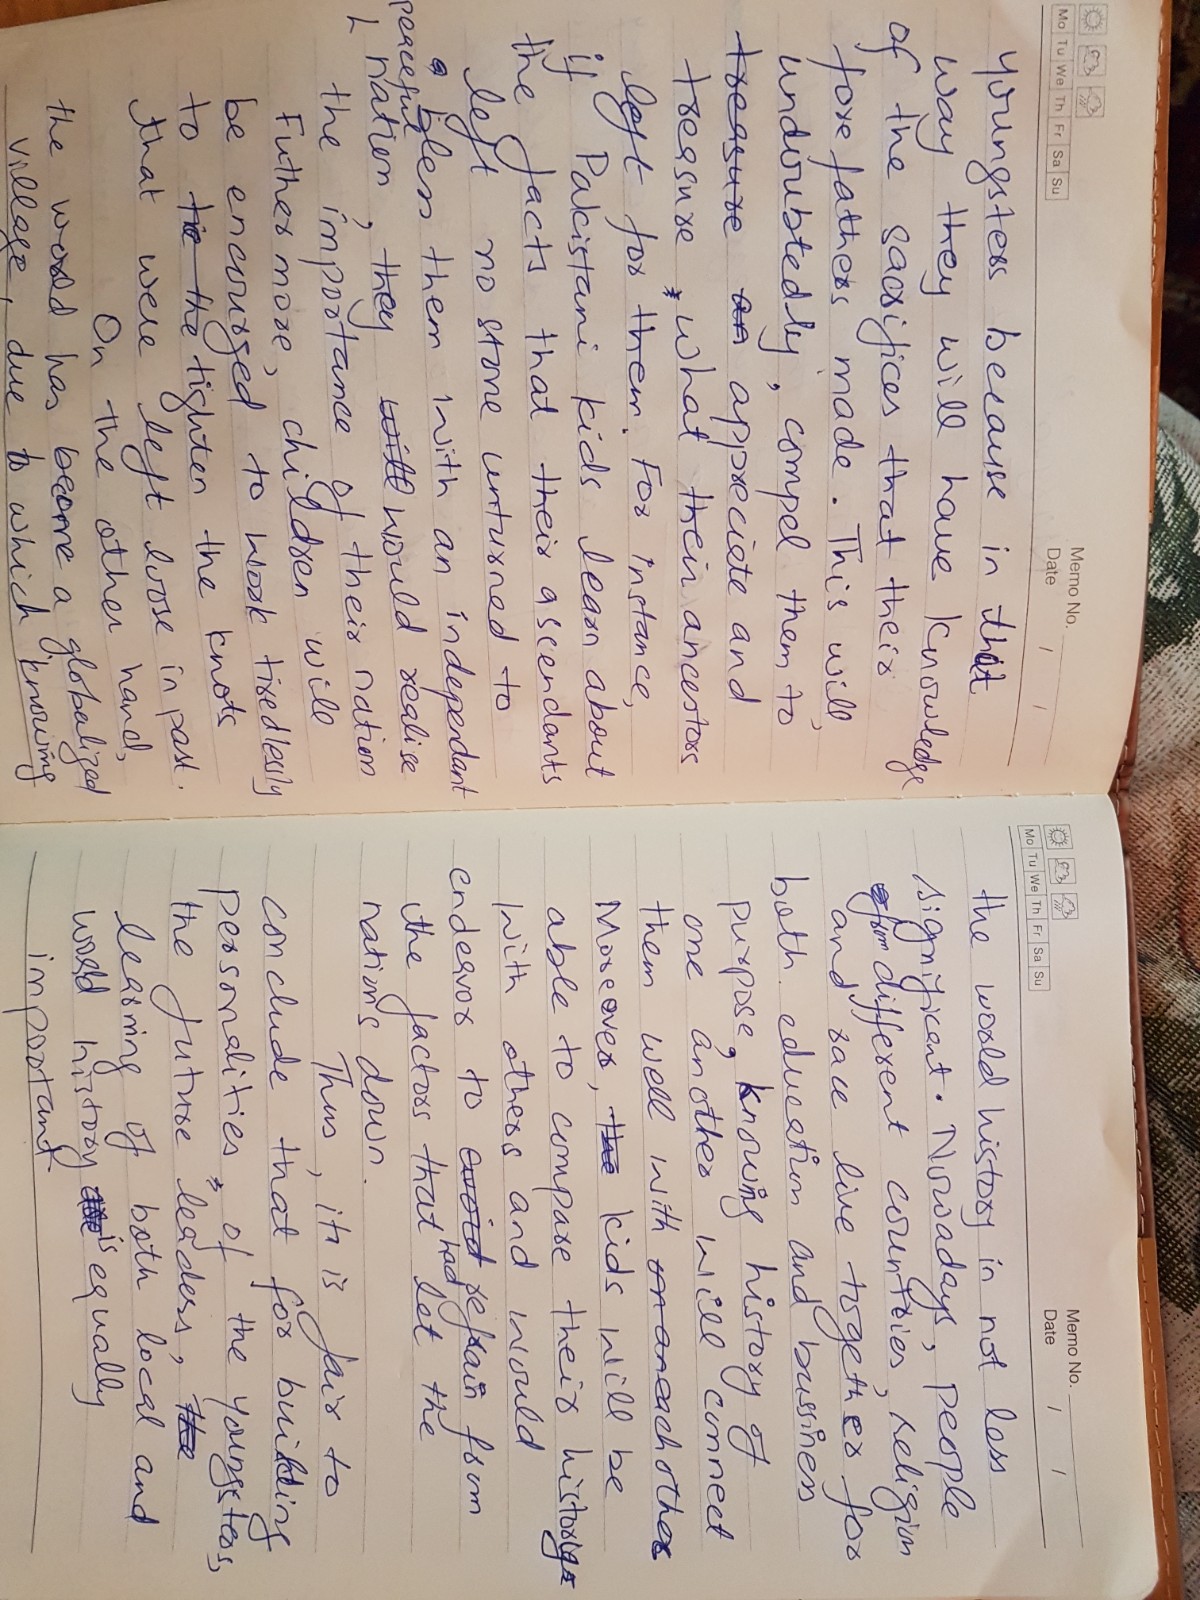 Mo Tu We Th Fr Sa Su
Memo No.
Date / /
youngsters because in that
way they will have knowledge
of the sacrifices that their
fore fathers made. This will,
undoubtedly, compel them to
treasure an appreciate and
treasure what their ancestors
left for them. For instance,
if Pakistani kids learn about
the facts that their ascendants
left no stone unturned to
bless them with an independant
peaceful
nation, they will would realise
the importance of their nation
Futhermore, children will
be encourged to work tiredlessly
to tie the tighten the knots
that were left loose in past.
On the other hand,
the world has become a globalized
village, due to which knowing
Mo Tu We Th Fr Sa Su
Memo No.
Date / /
the world history in not less
significant. Nowadays, people
from different countries, religion
and race live together for
both education and bussiness
purpose, knowing history of
one another will connect
them well with each other
Moreover, the kids will be
able to compare their history
with others and would
endeavor to avoid refrain form
the factors that had let the
nations down.
Thus, it is fair to
conclude that for building
personalities of the youngsters,
the future leaders, the
learning of both local and
world history is equally
important